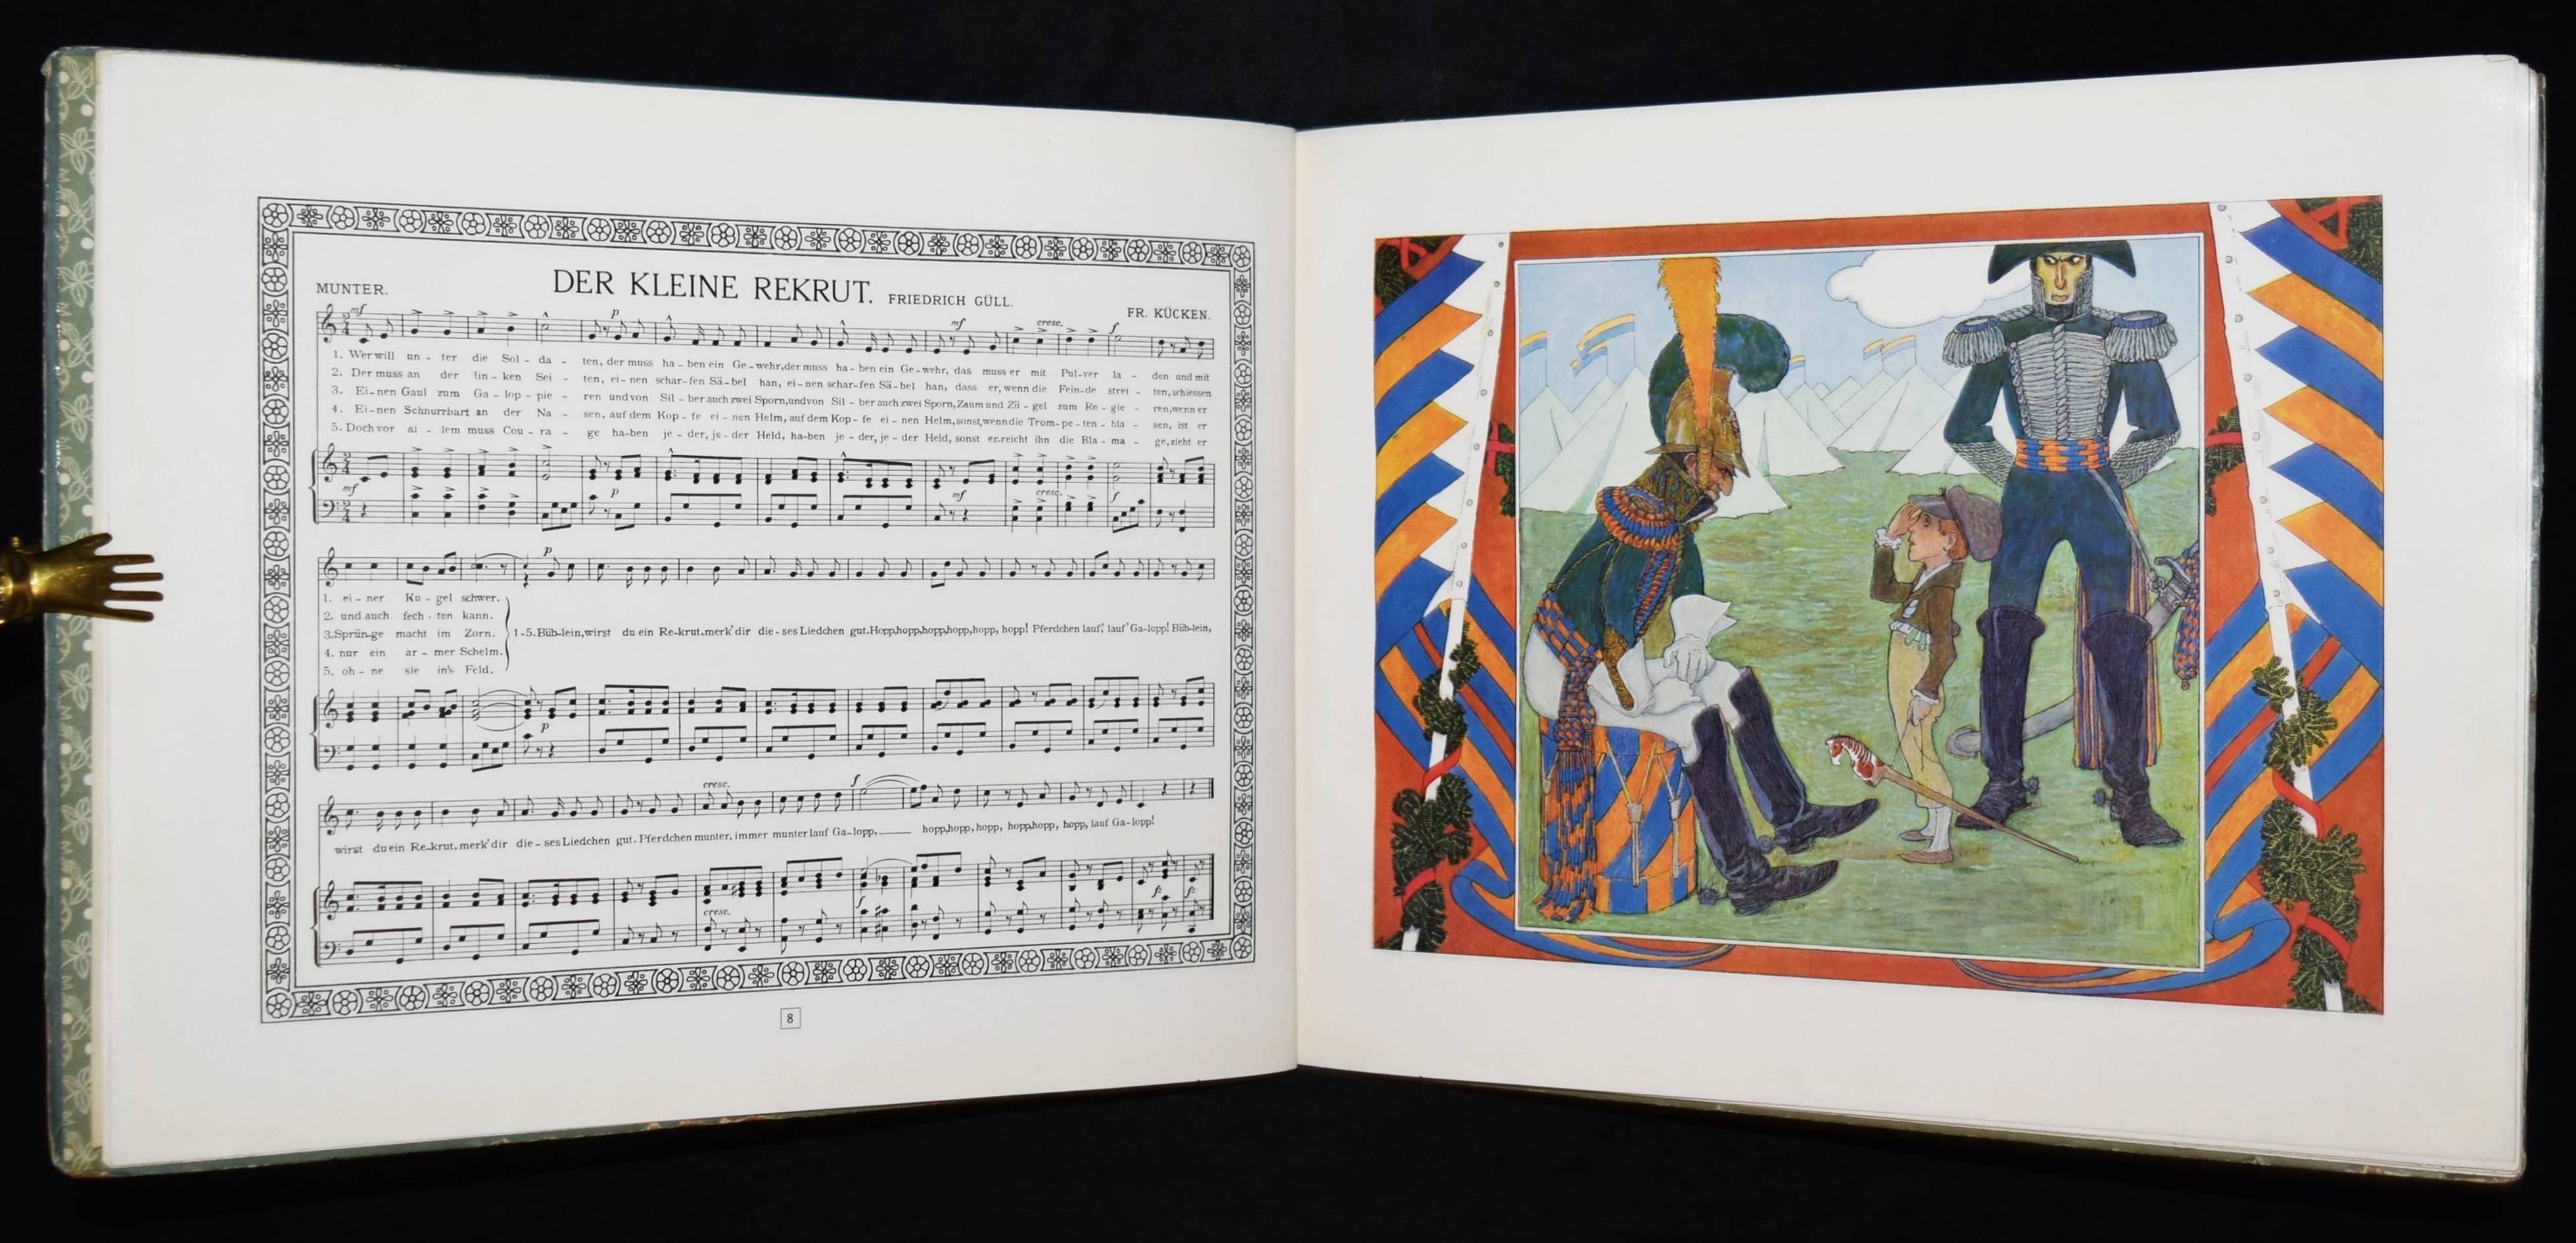 DER KLEINE REKRUT. FRIEDRICH GÜLL.
MUNTER.
FR. KÜCKEN.
mf p mf cresc. f
1. Wer will un - ter die Sol - da - ten, der muss ha - ben ein Ge - wehr, der muss ha - ben ein Ge - wehr, das muss er mit Pul - ver la - den und mit
2. Der muss an der lin - ken Sei - ten, ei - nen schar - fen Sä - bel han, ei - nen schar - fen Sä - bel han, dass er, wenn die Fein - de strei - ten, schiessen
3. Ei - nen Gaul zum Ga - lop - pie - ren und von Sil - ber auch zwei Sporn, und von Sil - ber auch zwei Sporn, Zaum und Zü - gel zum Re - gie - ren, wenn er
4. Ei - nen Schnurrbart an der Na - sen, auf dem Kop - fe ei - nen Helm, auf dem Kop - fe ei - nen Helm, sonst, wenn die Trom - pe - ten - bla - sen, ist er
5. Doch vor al - lem muss Cou - ra - ge ha - ben je - der, je - der Held, ha - ben je - der, je - der Held, sonst er - reicht ihn die Bla - ma - ge, zieht er
mf p mf cresc. f
p
1. ei - ner Ku - gel schwer.
2. und auch fech - ten kann.
3. Sprün - ge macht im Zorn.
4. nur ein ar - mer Schelm.
5. oh - ne sie in's Feld.
1-5. Büb - lein, wirst du ein Re - krut, merk' dir die - ses Liedchen gut. Hopp, hopp, hopp, hopp, hopp, hopp! Pferdchen lauf, lauf' Ga - lopp! Büb - lein,
p
cresc. f
wirst du ein Re - krut, merk' dir die - ses Liedchen gut. Pferdchen munter, immer munter lauf Ga - lopp, hopp, hopp, hopp, hopp, hopp, hopp, lauf Ga - lopp!
cresc. f f f
8